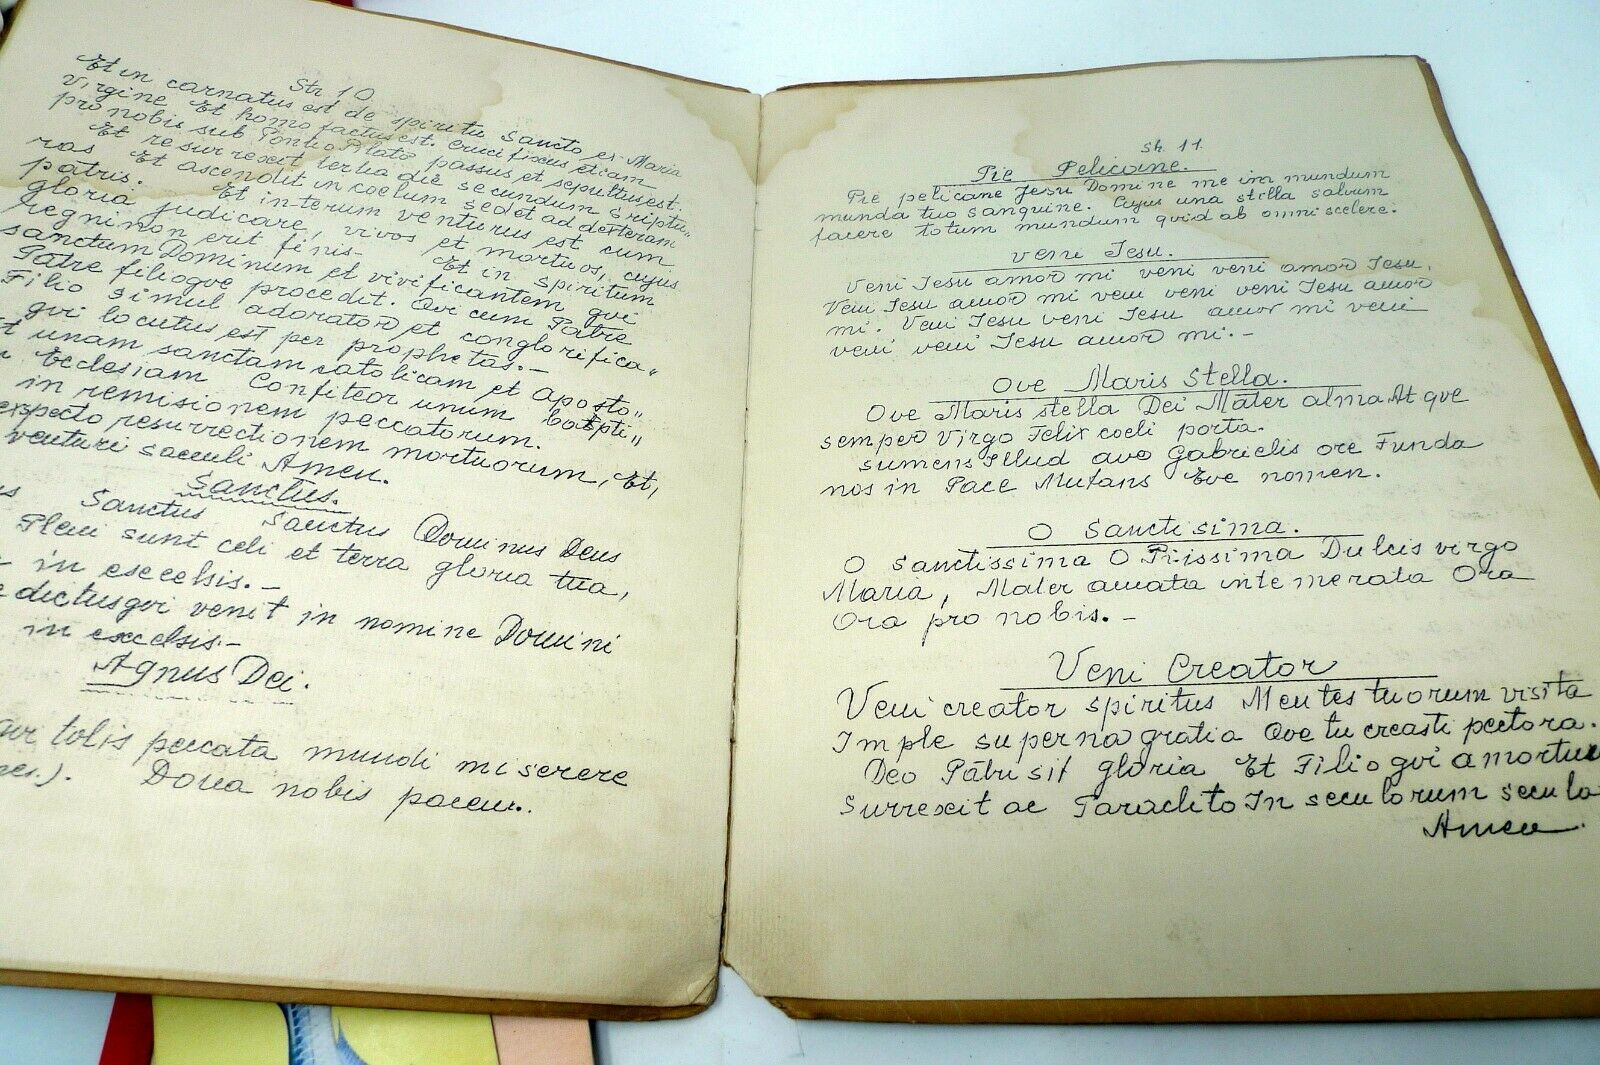 Str 10
Et in carnatus est de spiritu Sancto ex Maria
Virgine Et homo factus est. Crucifixus etiam
pro nobis sub Pontio Plato passus et sepultus est.
Et resurrexit tertia die secundum sriptu„
ras Et ascendit in coelum sedet ad desteram
patris: Et interum venturus est cum
gloria judicare, vivos et mortuos, cujus
regni non erit finis- Et in spiritum
sanctum Dominum et vivificantem qui
Patre filioque procedit. Qui cum Patre
Filio simul adorator et conglorifica„
qvi locutus est per prophetas.-
unam sanctam catolicam et aposto„
Eclesiam Confiteor unum bapti„
in remisionem peccatorum.
expecto resurrectionem mortuorum, Et,
venturi saeculi Amen.
Sanctus.
Sanctus Sanctus Dominus Deus
Pleni sunt celi et terra gloria tua,
in escelsis.-
dictus qvi venit in nomine Domini
in excelsis.-
Agnus Dei.
qui tolis peccata mundi miserere
Dona nobis pacem.
Str. 11
Pie Pelicane.
Pie pelicane Jesu Domine me im mundum
munda tuo sanguine. Cujus una stilla salvum
facere totum mundum quid ab omni scelere.
Veni Jesu.
Veni Jesu amor mi veni veni amor Jesu.
Veni Jesu amor mi veni veni veni Jesu amor
mi. Veni Jesu veni Jesu amor mi veni
veni veni Jesu amor mi.-
Ove Maris Stella.
Ove Maris stella Dei Mater alma At que
semper Virgo Felix coeli porta.
sumens Illud avo Gabrielis ore Funda
nos in Pace Mutans Eve nomen.
O Sanctisima.
O Sanctissima O Piissima Dulcis virgo
Maria, Mater amata inte merata Ora
Ora pro nobis.-
Veni Creator
Veni creator spiritus Mentes tuorum visita
Imple superna gratia Qve tu creasti pectora.
Deo Patri sit gloria Et Filio qvi a mortui
Surrexit ac Paraclito In seculorum secula
Amen